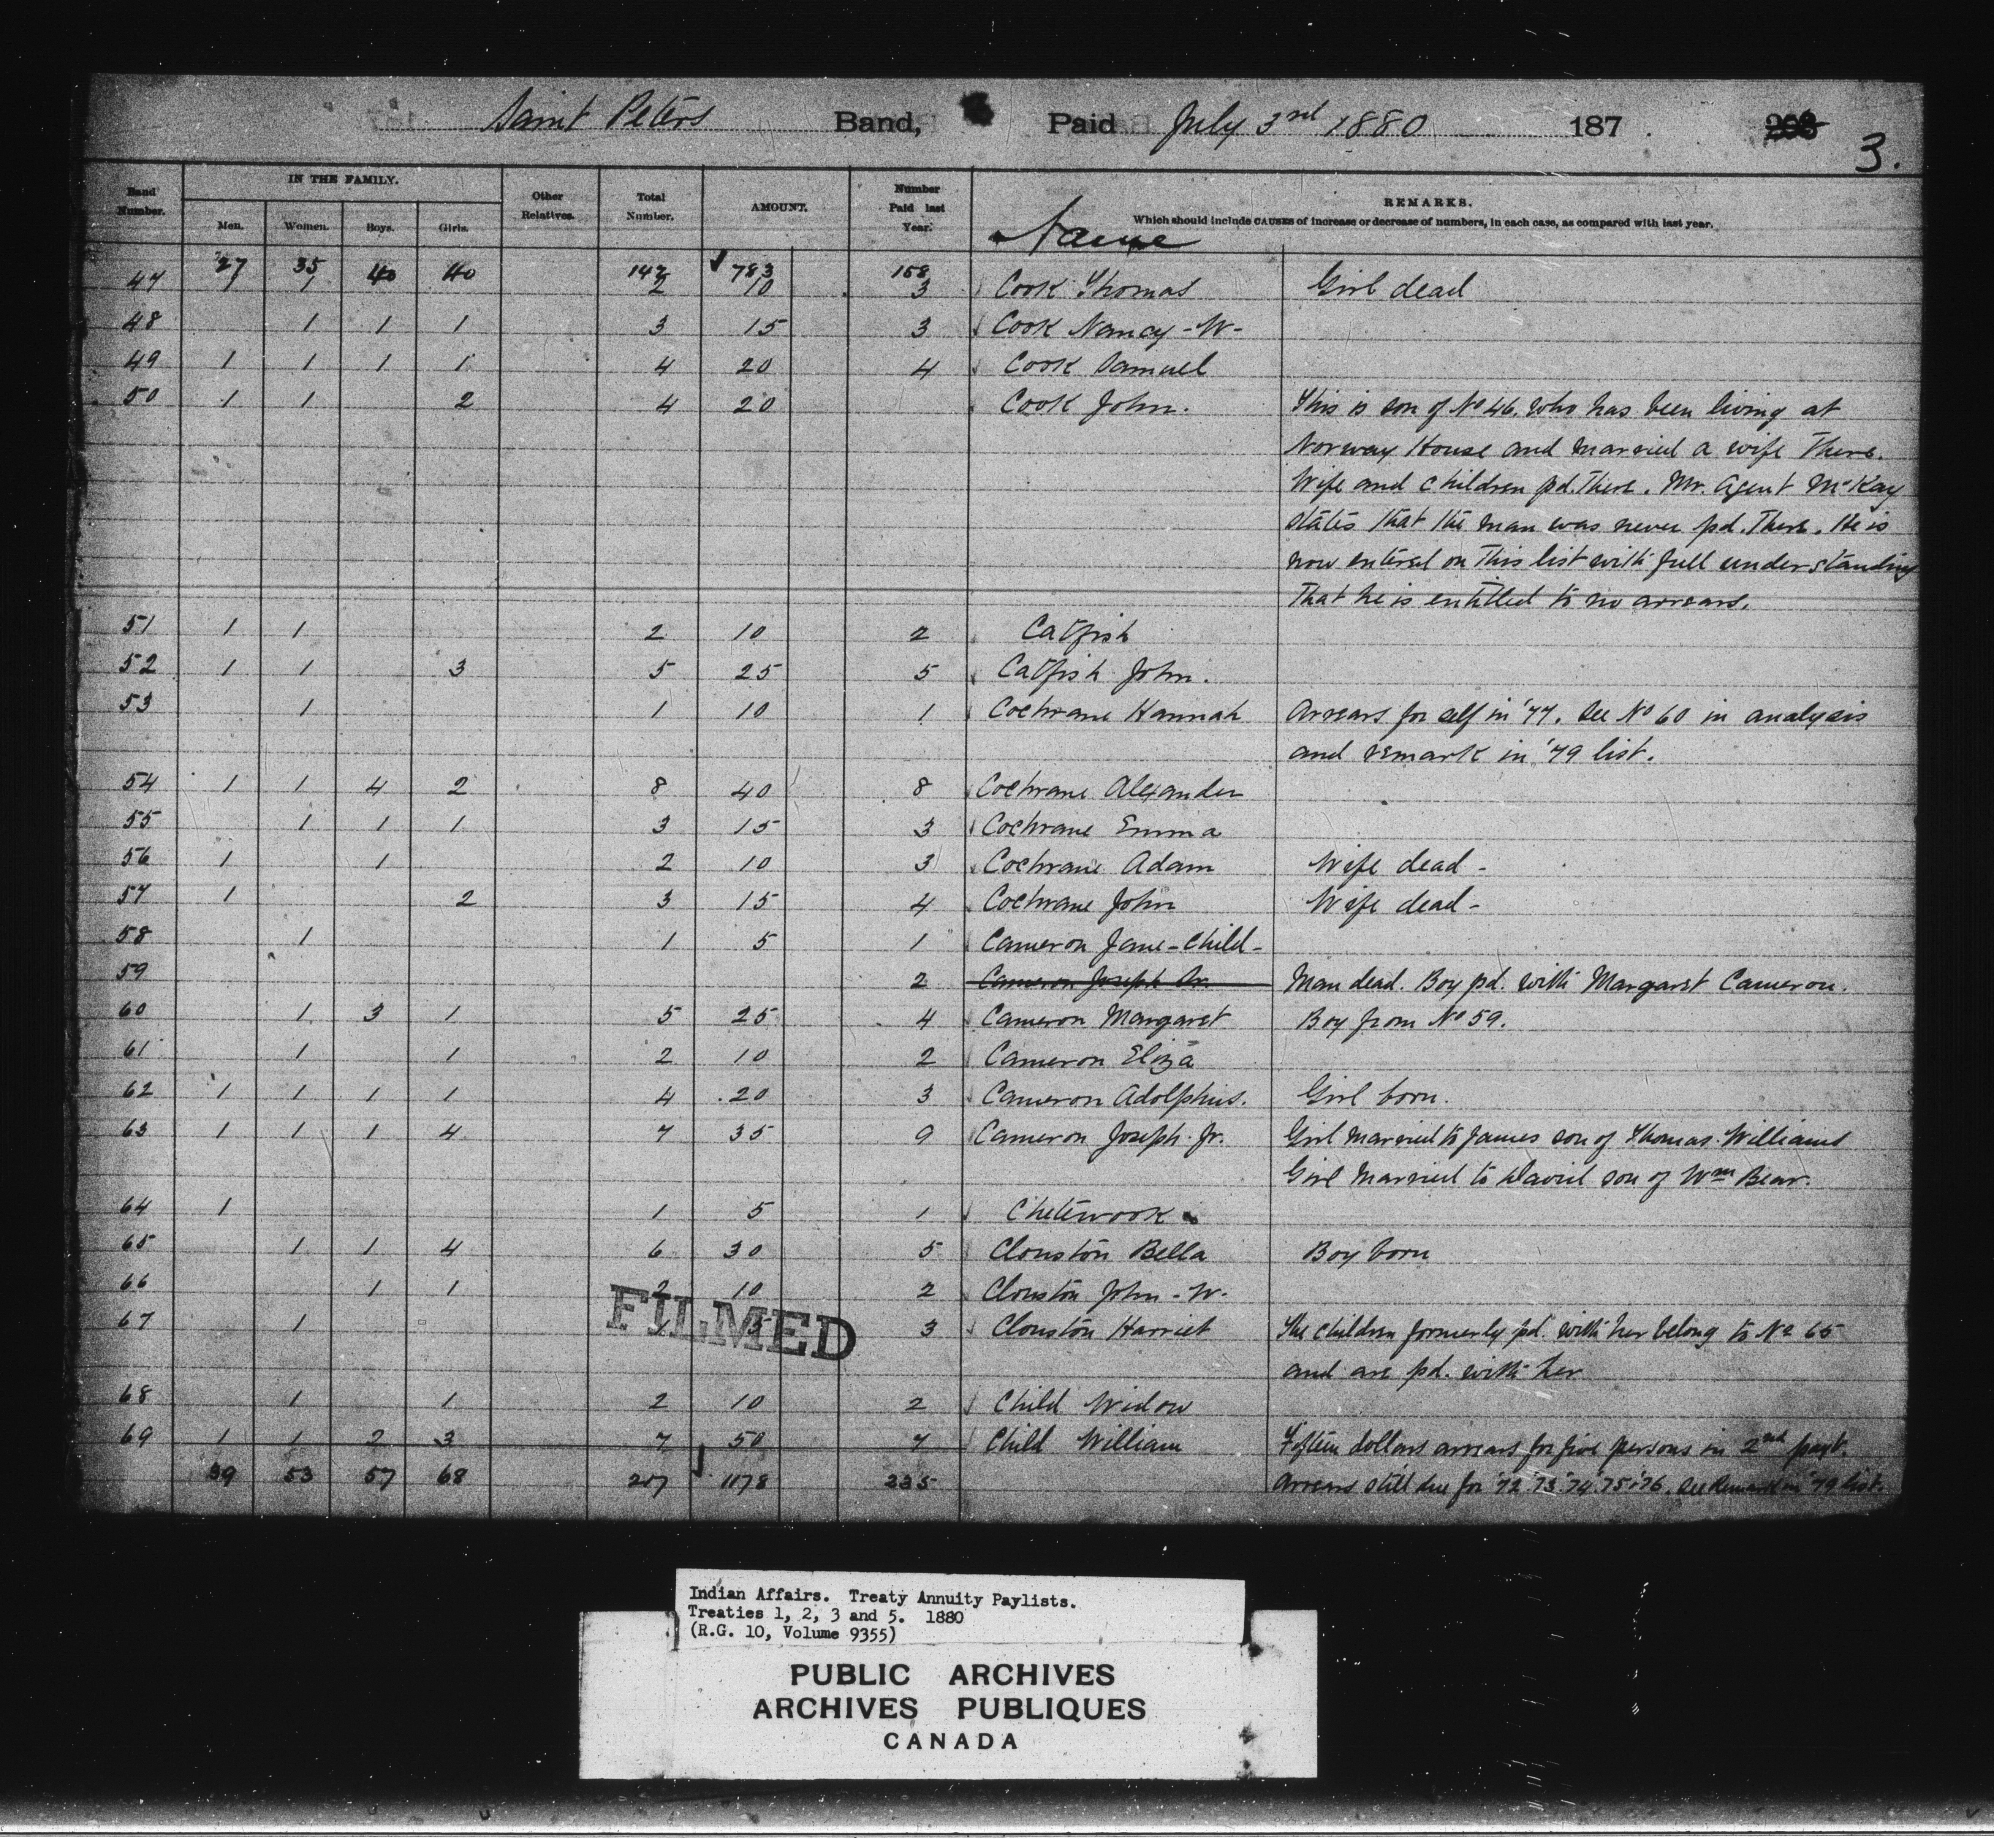 Saint Peters Band, Paid July 3rd 1880 187 .
3.
Band Number. IN THE FAMILY. Men. Women. Boys. Girls. Other Relatives. Total Number. AMOUNT. Number Paid last Year. Name REMARKS.
Which should include CAUSES of increase or decrease of numbers, in each case, as compared with last year.
27 35 40 40 142 783 158
47 1 1 2 10 3 Cook Thomas Girl dead
48 1 1 1 3 15 3 Cook Nancy - W-
49 1 1 1 1 4 20 4 Cook Samuel
50 1 1 2 4 20 Cook John. This is son of No 46. who has been living at
Norway House and married a wife there.
Wife and children pd. there. Mr. Agent McKay
states that the man was never pd. there. He is
now entered on this list with full understanding
that he is entitled to no arrears.
51 1 1 2 10 2 Catfish
52 1 1 3 5 25 5 Catfish John.
53 1 1 10 1 Cochrane Hannah Arrears for self in '77. See No 60 in analysis
and remark in '79 list.
54 1 1 4 2 8 40 8 Cochrane Alexander
55 1 1 1 3 15 3 Cochrane Emma
56 1 1 2 10 3 Cochrane Adam Wife dead -
57 1 2 3 15 4 Cochrane John Wife dead -
58 1 1 5 1 Cameron Jane - Child -
59 2 Cameron Joseph Sr. Man dead. Boy pd. with Margaret Cameron.
60 1 3 1 5 25 4 Cameron Margaret Boy from No 59.
61 1 1 2 10 2 Cameron Eliza
62 1 1 1 1 4 20 3 Cameron Adolphus. Girl born.
63 1 1 1 4 7 35 9 Cameron Joseph Jr. Girl married to James son of Thomas Williams
Girl married to David son of Wm Bear.
64 1 1 5 1 Chetewook
65 1 1 4 6 30 5 Clouston Bella Boy born
66 1 1 2 10 2 Clouston John - W-
67 1 1 5 3 Clouston Harriet The children formerly pd. with her belong to No 65
and are pd. with her
FILMED
68 1 1 2 10 2 Child Widow
69 1 1 2 3 7 50 7 Child William Fifteen dollars arrears for five persons in 2nd payt.
39 53 57 68 217 1178 235 Arrears still due for '72 '73 '74 '75 '76. See Remark in '79 list.
Indian Affairs. Treaty Annuity Paylists.
Treaties 1, 2, 3 and 5. 1880
(R.G. 10, Volume 9355)
PUBLIC ARCHIVES
ARCHIVES PUBLIQUES
CANADA